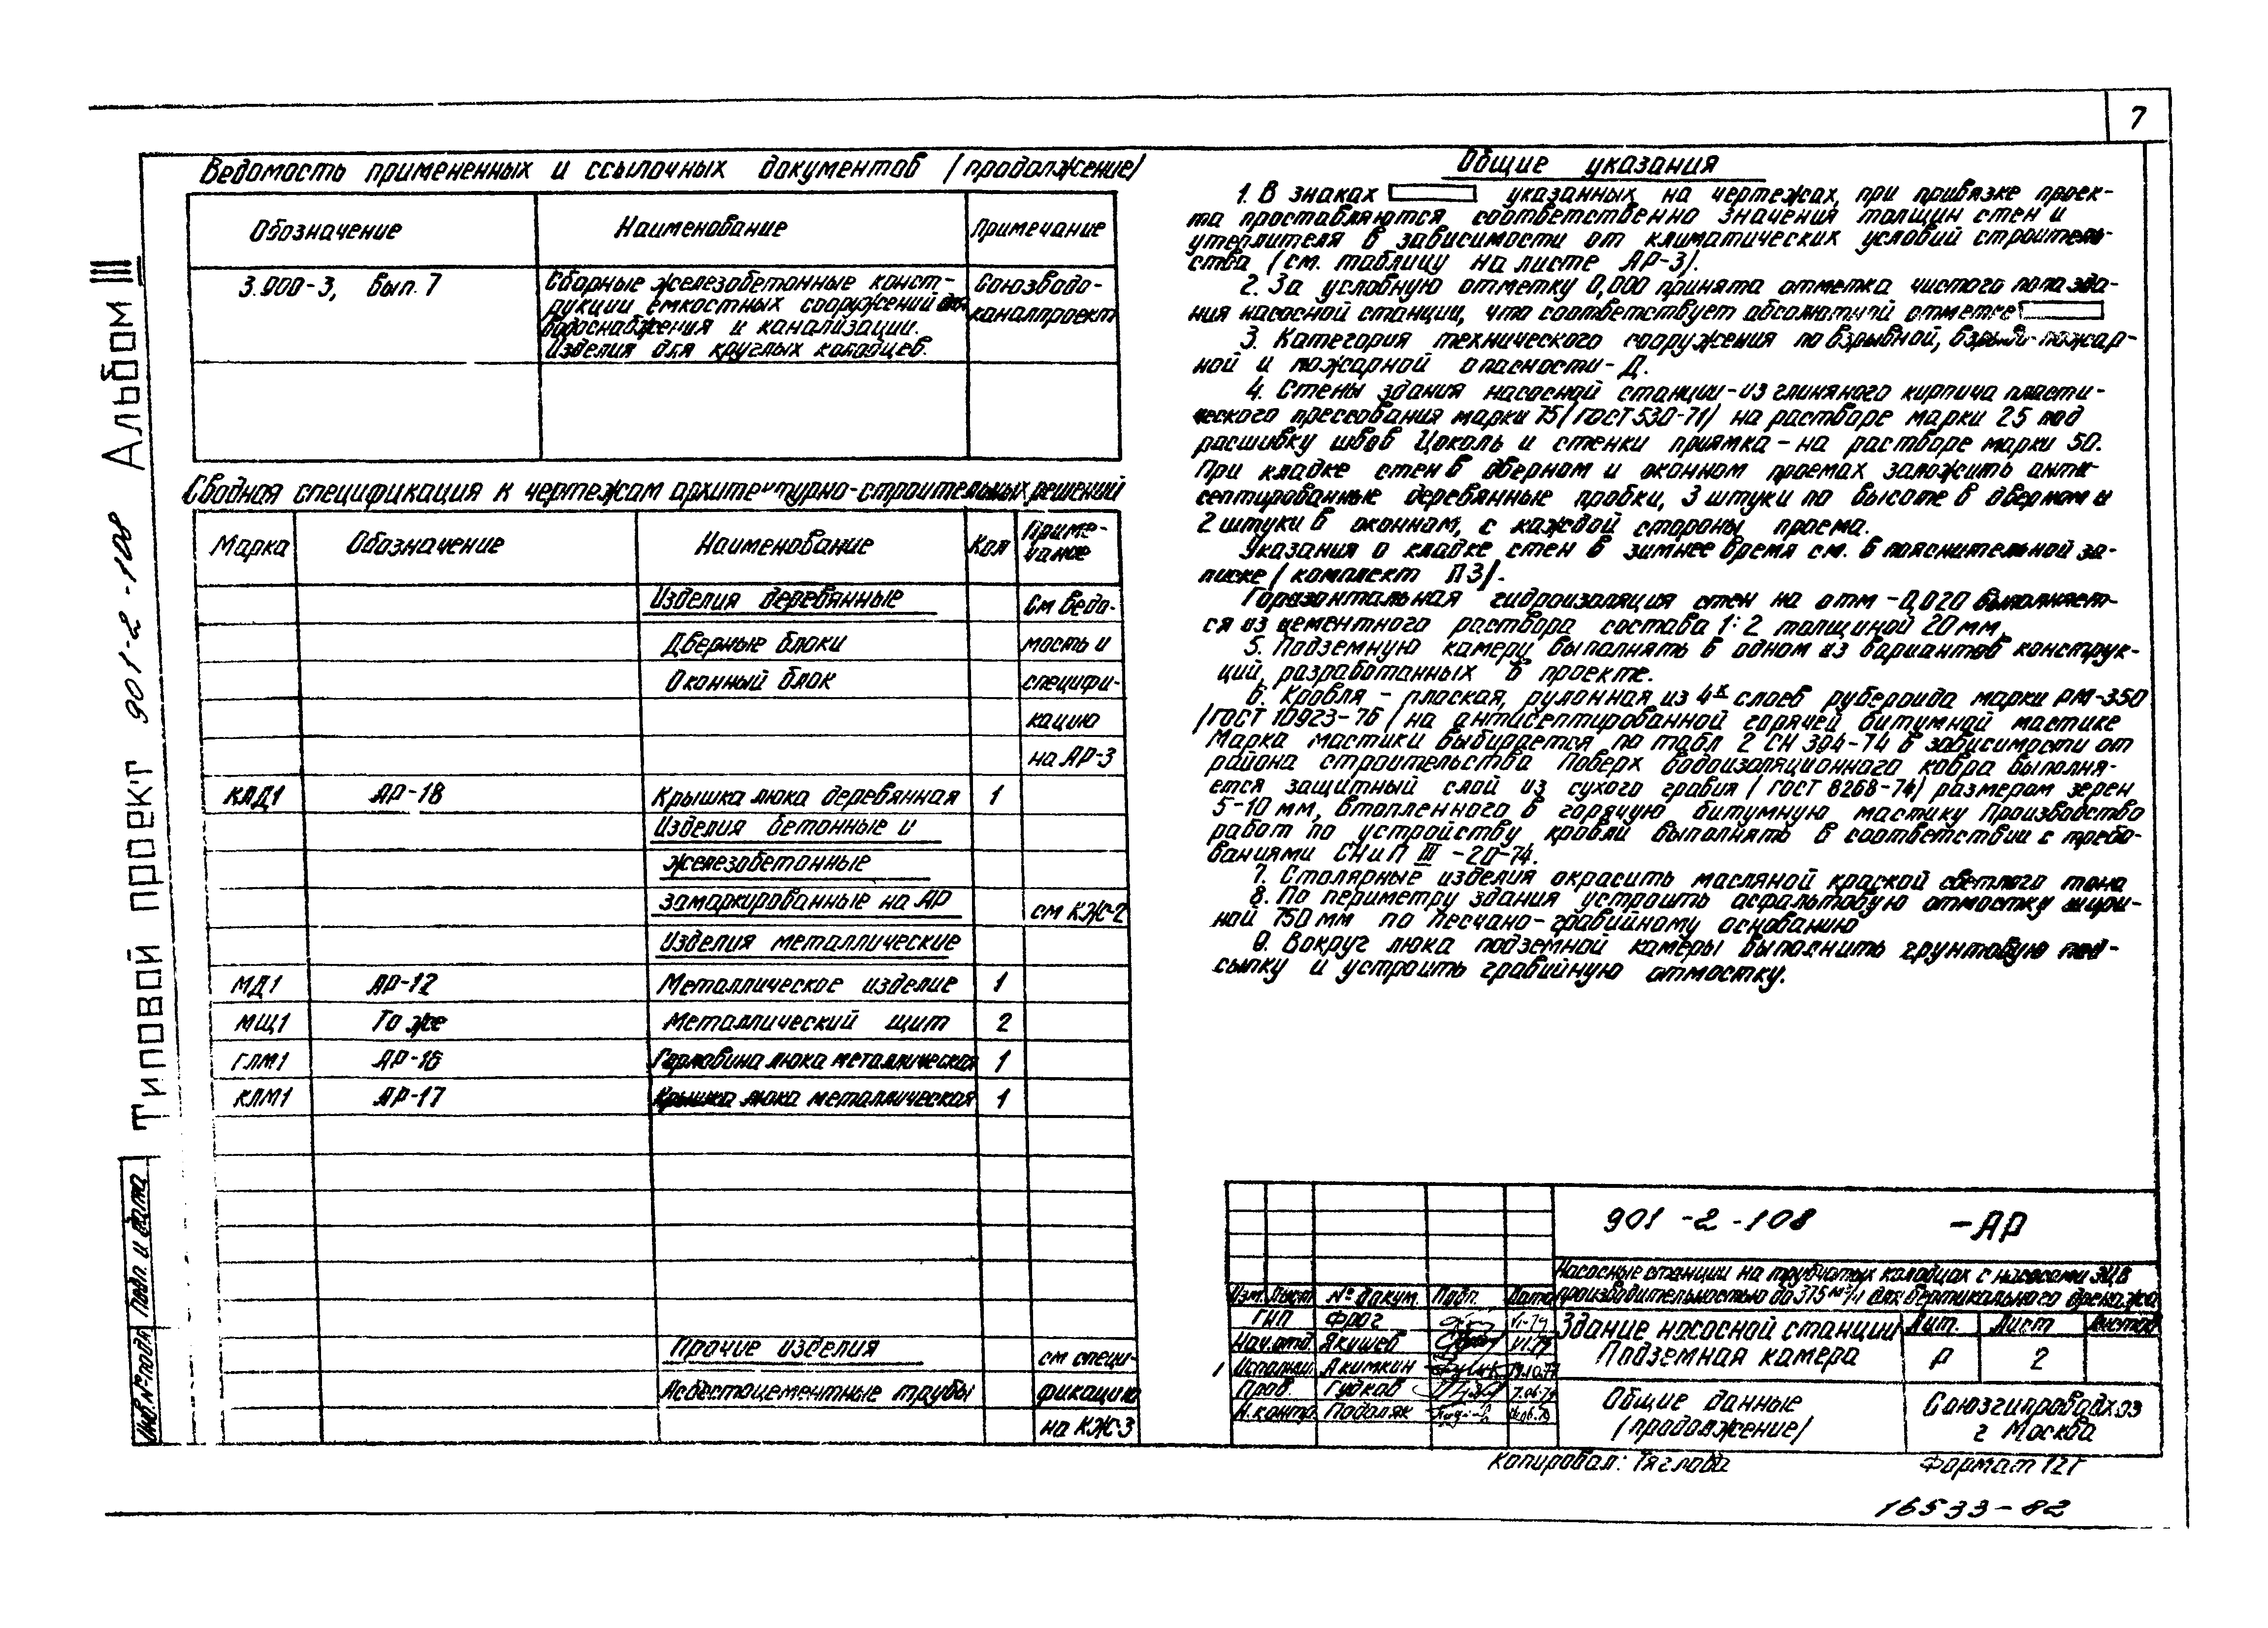 7
Альбом III
Типовой проект 901-2-108
Инв.№ подл Подп. и дата
Ведомость примененных и ссылочных документов (продолжение)
Обозначение Наименование Примечание
3.900-3, Вып. 7 Сборные железобетонные конст- Союзводо-
рукции емкостных сооружений для каналпроект
водоснабжения и канализации.
Изделия для круглых колодцев.
Сводная спецификация к чертежам архитектурно-строительных решений
Марка Обозначение Наименование Кол Приме-
чание
Изделия деревянные См ведо-
Дверные блоки мость и
Оконный блок специфи-
кацию
на АР-3
КЛД1 АР-18 Крышка люка деревянная 1
Изделия бетонные и
железобетонные
замаркированные на АР см КЖ-2
Изделия металлические
МД1 АР-12 Металлическое изделие 1
МЩ1 То же Металлический щит 2
ГЛМ1 АР-16 Горловина люка металлическая 1
КЛМ1 АР-17 Крышка люка металлическая 1
Прочие изделия см специ-
Асбестоцементные трубы фикацию
на КЖ-3
Общие указания
1. В знаках указанных на чертежах, при привязке проек-
та проставляются соответственно значения толщин стен и
утеплителя в зависимости от климатических условий строитель-
ства (см. таблицу на листе АР-3).
2. За условную отметку 0,000 принята отметка чистого пола зда-
ния насосной станции, что соответствует абсолютной отметке
3. Категория технического сооружения по взрывной, взрыво-пожар-
ной и пожарной опасности - Д.
4. Стены здания насосной станции - из глиняного кирпича пласти-
ческого прессования марки 75 (ГОСТ 530-71) на растворе марки 25 под
расшивку швов Цоколь и стенки приямка - на растворе марки 50.
При кладке стен в дверном и оконном проемах заложить анти-
септированные деревянные пробки, 3 штуки по высоте в дверном и
2 штуки в оконном, с каждой стороны проема.
Указания о кладке стен в зимнее время см. в пояснительной за-
писке (комплект ПЗ).
Горизонтальная гидроизоляция стен на отм -0,020 выполняет-
ся из цементного раствора состава 1:2 толщиной 20 мм,
5. Подземную камеру выполнять в одном из вариантов конструк-
ций, разработанных в проекте.
6. Кровля - плоская, рулонная из 4х слоев рубероида марки РМ-350
(ГОСТ 10923-76) на антисептированной горячей битумной мастике
Марка мастики выбирается по табл 2 СН 394-74 в зависимости от
района строительства Поверх водоизоляционного ковра выполня-
ется защитный слой из сухого гравия (ГОСТ 8268-74) размером зерен
5-10 мм, втопленного в горячую битумную мастику Производство
работ по устройству кровли выполнять в соответствии с требо-
ваниями СНиП III-20-74.
7. Столярные изделия окрасить масляной краской светлого тона
8. По периметру здания устроить асфальтовую отмостку шири-
ной 750 мм по песчано-гравийному основанию
9. Вокруг люка подземной камеры выполнить грунтовую под-
сыпку и устроить гравийную отмостку.
901-2-108 -АР
Насосные станции на трубчатых колодцах с насосами ЭЦВ
производительностью до 375 м³/ч для вертикального дренажа
Изм. Лист № докум. Подп. Дата
ГИП Фрог VI-79
Нач.отд. Якушев VI.79
1 Исполни. Акимкин
Пров. Гудков 7.06.79
Н.контр. Подоляк
Здание насосной станции
Подземная камера
Лит. Лист Листов
Р 2
Общие данные
(продолжение)
Союзгипроводхоз
г Москва
Копировал: Тяглова Формат 12Г
16533-82